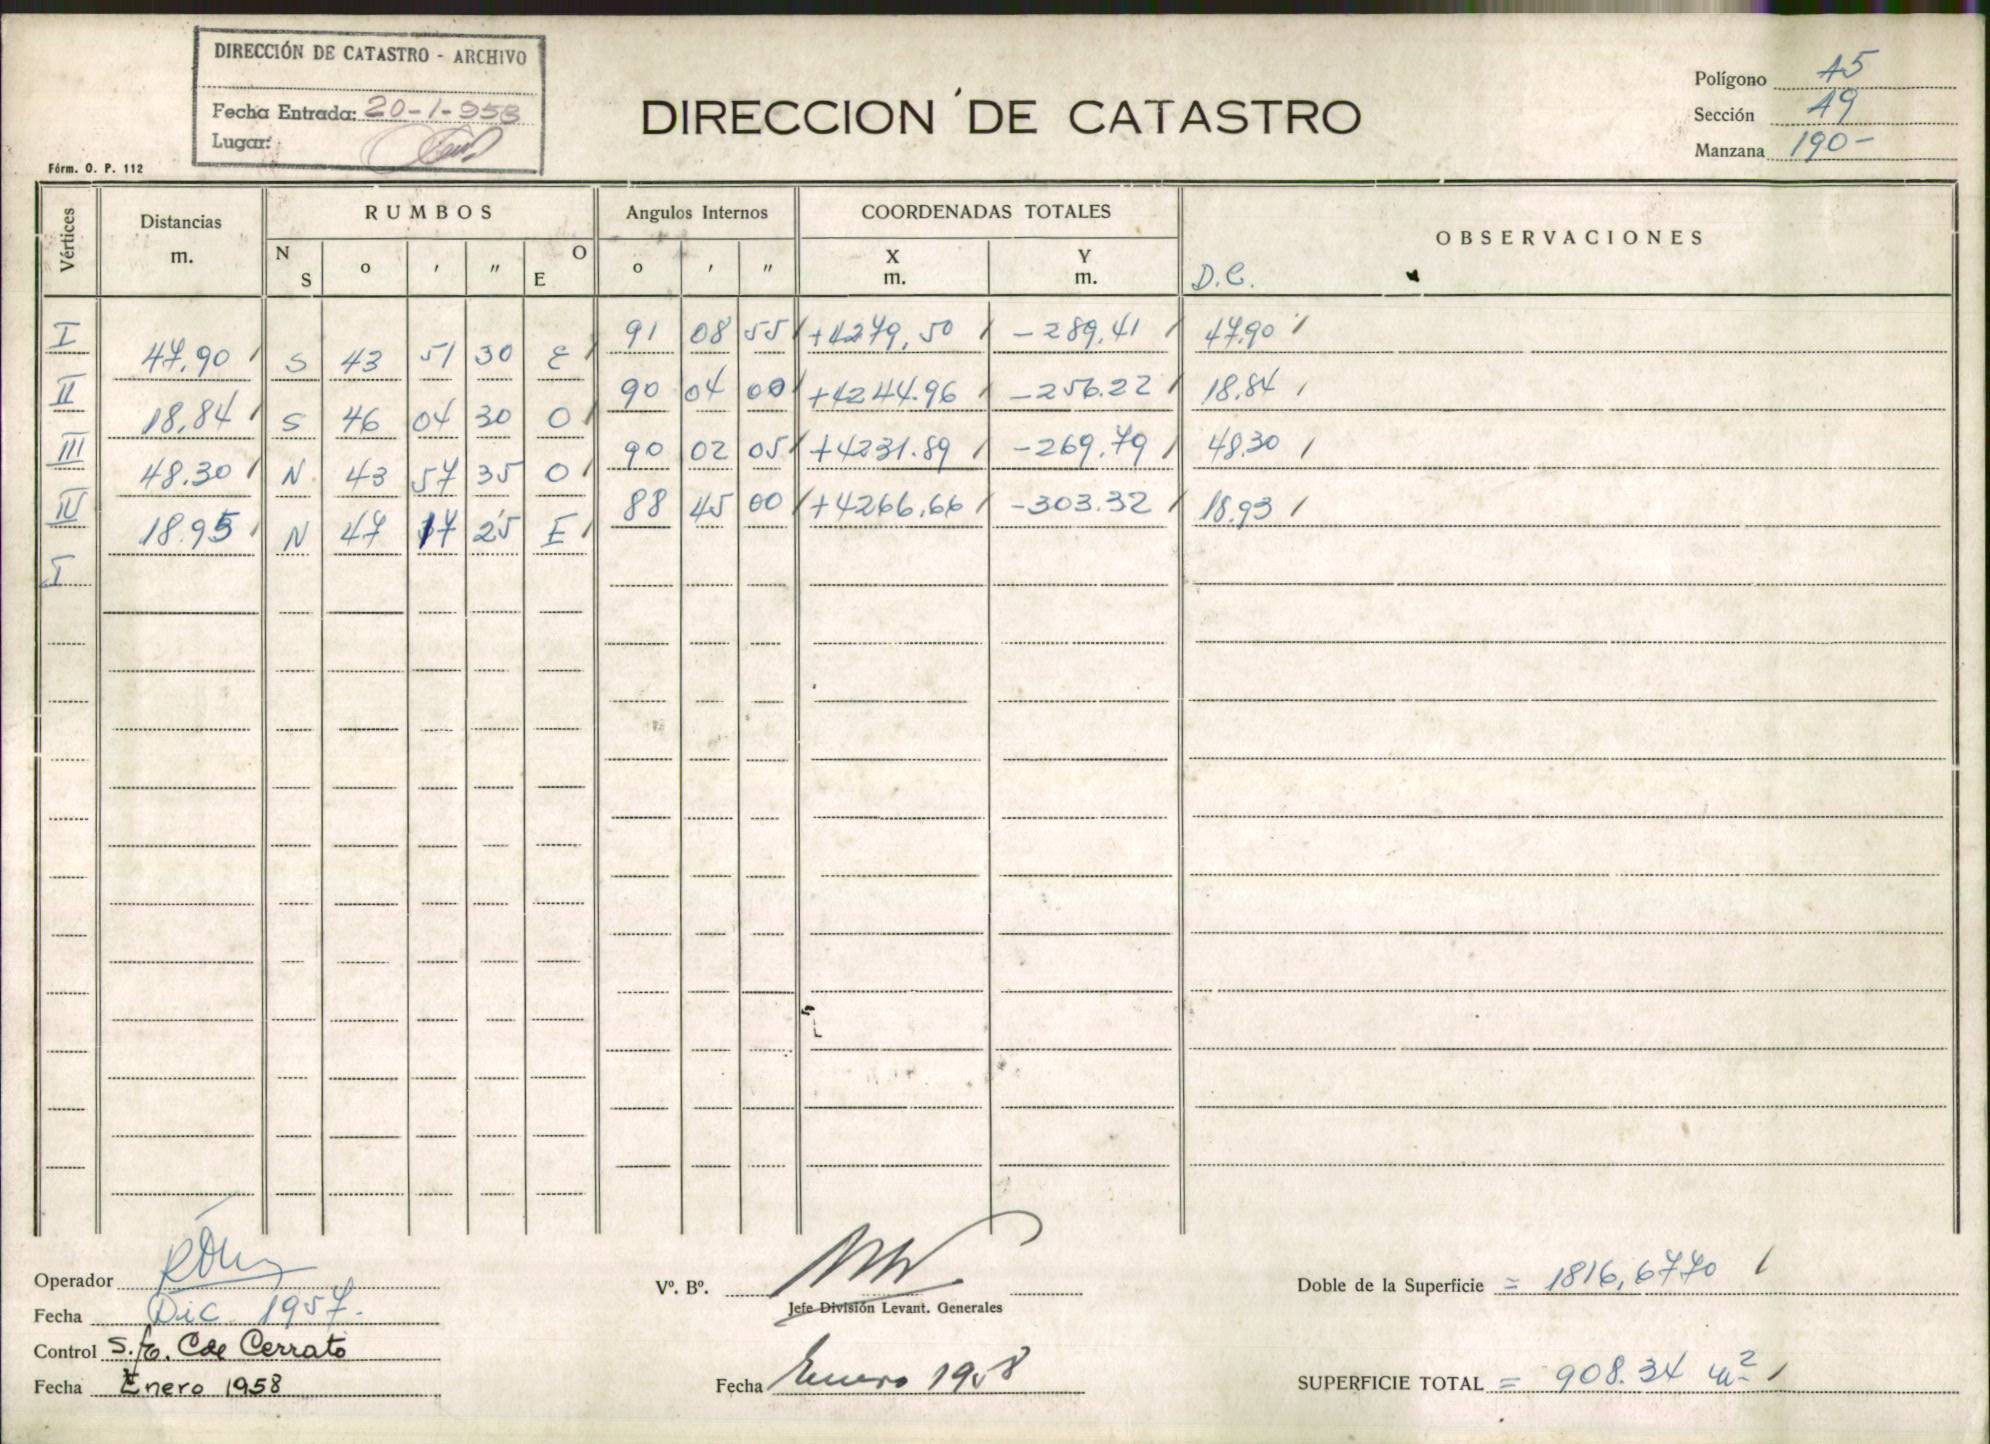 DIRECCIÓN DE CATASTRO - ARCHIVO
Fecha Entrada: 20-1-958
Lugar:
Fórm. O. P. 112
DIRECCION DE CATASTRO
Polígono 15
Sección 19
Manzana 190-
Vértices Distancias m. RUMBOS Angulos Internos COORDENADAS TOTALES OBSERVACIONES
N S o ' " O E o ' " X m. Y m. D.C.
I 91 08 55 +4279,50 -289,41 47,90
47,90 S 43 51 30 E
II 90 04 00 +4244.96 -256.22 18,84
18,84 S 46 04 30 O
III 90 02 05 +4231.89 -269,79 48,30
48.30 N 43 57 35 O
IV 88 45 00 +4266,66 -303.32 18,93
18.95 N 47 17 25 E
I
Operador
Fecha Dic. 1957.
Control S. Cde Cerrato
Fecha Enero 1958
Vº. Bº.
Jefe División Levant. Generales
Fecha Enero 1958
Doble de la Superficie = 1816,6770
SUPERFICIE TOTAL = 908.34 m2